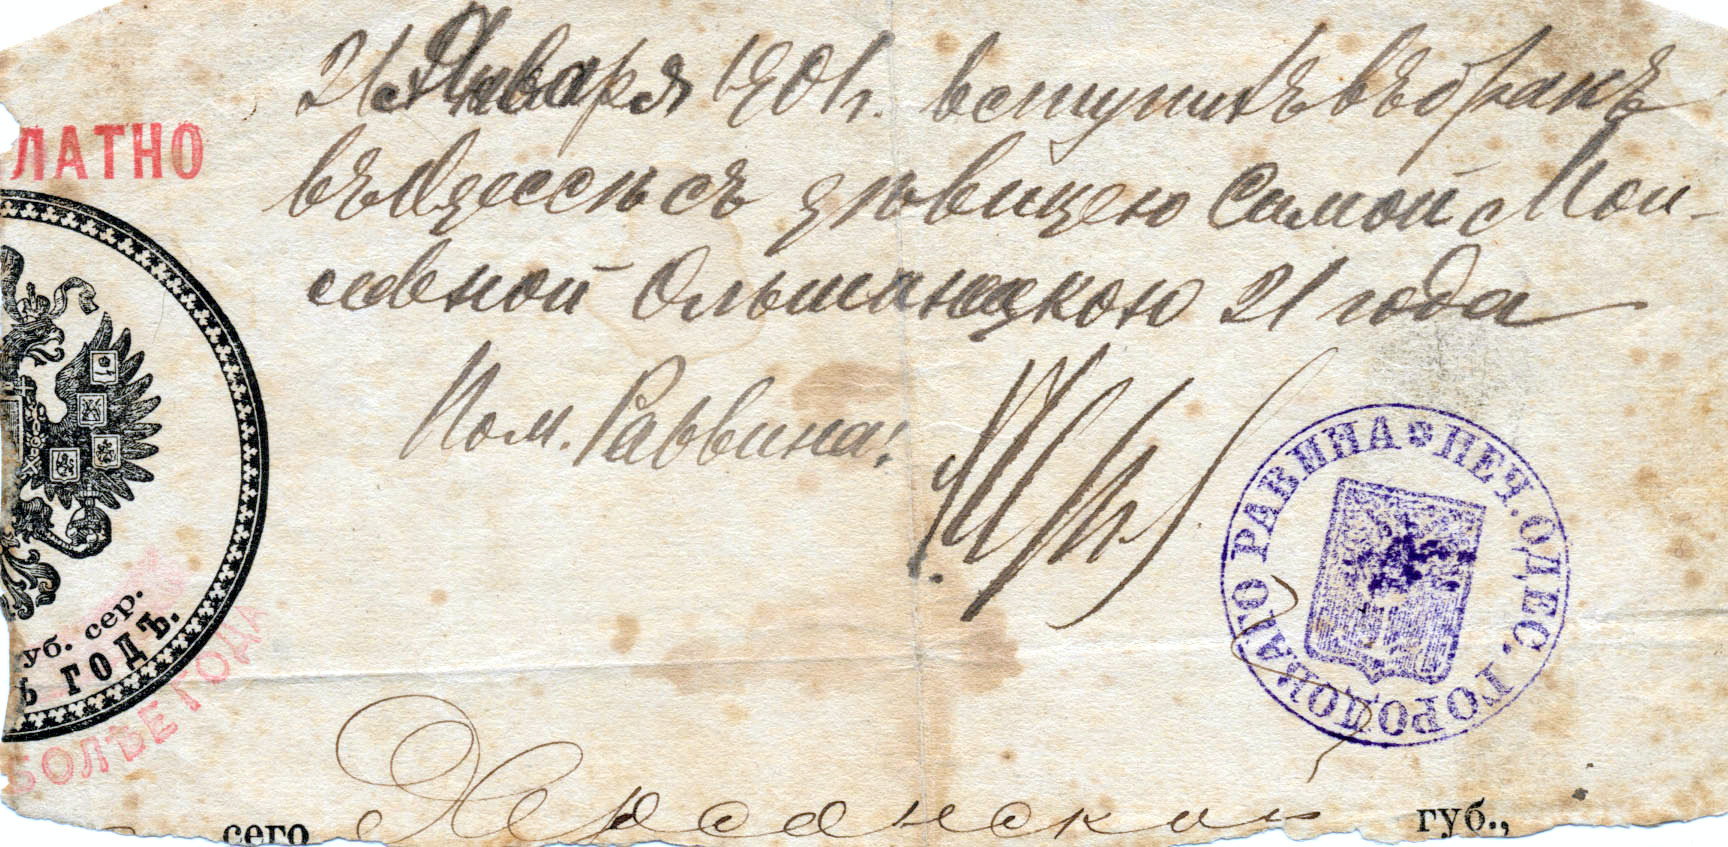 21 Января 1901 г. вступилъ въ бракъ
въ Одессѣ съ дѣвицею Симой Мои-
сеевной Ольшаницкою 21 года
Пом. Раввина:
ЛАТНО
уб. сер.
Ъ ГОДЪ.
БОЛѢЕ ГОДА
ПЕЧ. ОДЕС. ГОРОДОВАГО РАВИНА
сего Херсонской губ.,